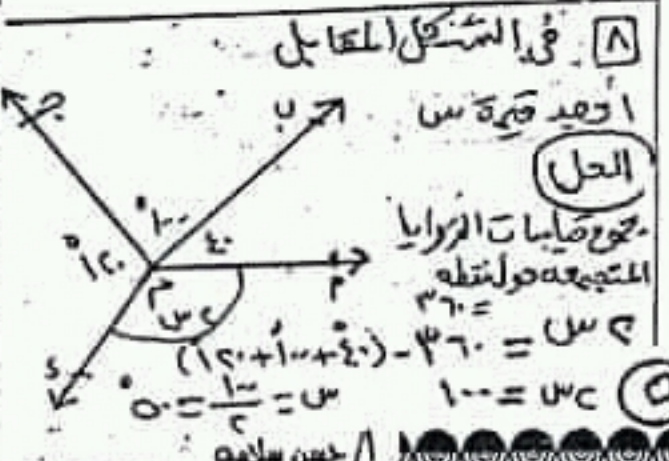 ٨ في الشكل المقابل
أوجد قيمة س
الحل
مجموع قياسات الزوايا
المتجمعة حول نقطة
= ٣٦٠
٢س = ٣٦٠ - (٤٠° + ١٠٠° + ١٢٠°)
٢س = ١٠٠
س = ١٠٠/٢ = ٥٠°
جـ
ب
١٠٠°
٤٠
١٢٠°
م
أ
٢س
د
حسن سلامه